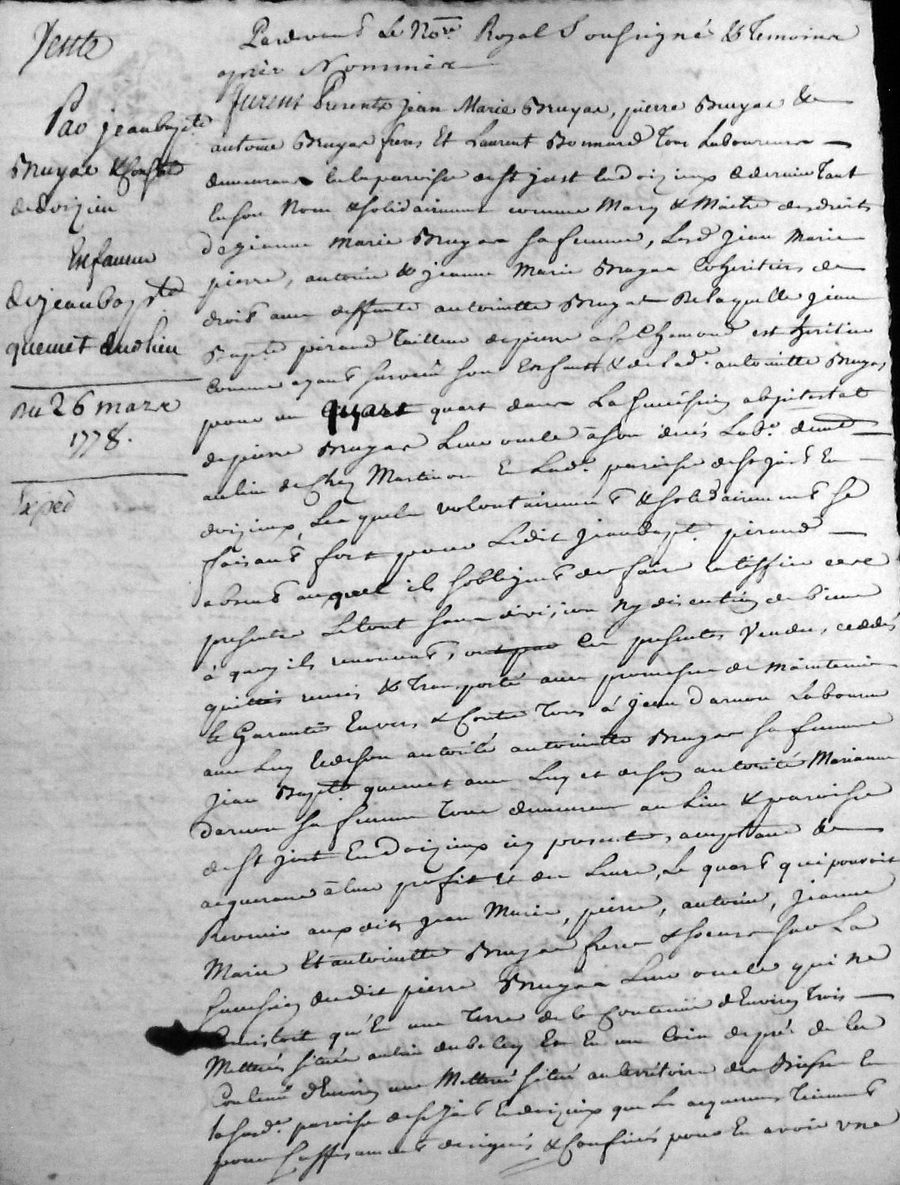 Vente
Par jean bapte
Bruyas & Consorts
de doizieu
En faveur
de jean bapte
quemet dudt lieu
Du 26 mars
1778.
Exped
Pardevant Le Nore Royal Soussigné & Temoins
après Nommés
furent Presents jean Marie Bruyas, pierre Bruyas &
antoine Bruyas freres Et Laurent Bonnard Tous Laboureurs
demeurans En la paroisse de St just En doizieux Ce dernier Tant
En son Nom & solidairement comme Mary & Maitre des droits
de jeanne Marie Bruyas sa femme, Lesd. jean Marie
pierre, antoine & jeanne Marie Bruyas Coheritiers de
droit avec deffunte antoinette Bruyas De laquelle jean
Bapte perand Tailleur de pierre a St Chamond est heritier
Comme ayant survécu son Enfant & de lade antoinette Bruyas,
pour un quart dans La succession ab intestat
de pierre Bruyas Leur oncle à son decés Lab. dud.
au lieu de Chez Martinon En Lade paroisse de St just En
doizieux, Lesquels volontairement & solidairement se
faisant fort pour Ledit jean bapt. perand
absent auquel ils s'obligent de faire ratiffier ces
presentes Le tout sans division Ny discution de biens
à quoy ils renoncent, ont par ces presentes Vendu, cedés
quittés remis & Transporté avec promesse de Maintenir
& Garantir Envers & Contre Tous à jean darnon Laboureur
avec Luy Et de son autorité antoinette Bruyas sa femme
jean Bapte quemet avec Luy et de son autorité Marianne
darnon sa femme Tous demeurans au Lieu & paroisse
de St just En doizieux icy presents, acceptans &
acquerans à leur profit Et des Leurs, Le quart qui pouvoit
Revenir auxdits jean Marie, pierre, antoine, jeanne
Marie Et antoinette Bruyas freres & soeurs sur La
succession dudit pierre Bruyas Leur oncle qui ne
Consistoit qu'En une Terre de la Contenüe d'Environ Trois
Metterés située au lieu du Et En un Coin de pré de la
Contenüe d'Environ une Metteré situé au territoire de En
la susde paroisse de St just En doizieux que Les acquereurs Tiennent
pour suffisament designés & Confinés pour En avoir une